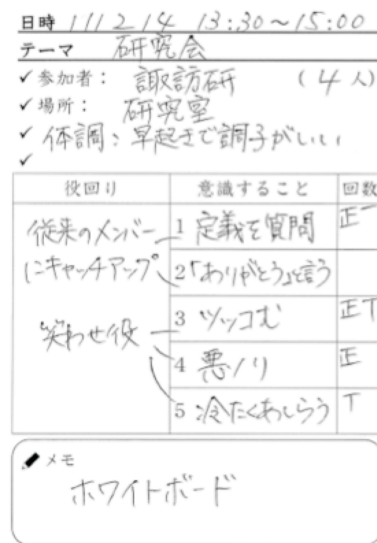 日時 11/12/14 13:30～15:00
テーマ 研究会
✓参加者： 諏訪研 （4人）
✓場所： 研究室
✓体調：早起きで調子がいい
✓
役回り 意識すること 回数
従来のメンバーにキャッチアップ
1 定義を質問 正一
2 「ありがとう」と言う
笑わせ役
3 ツッコむ 正T
4 悪ノリ 正
5 冷たくあしらう T
メモ
ホワイトボード